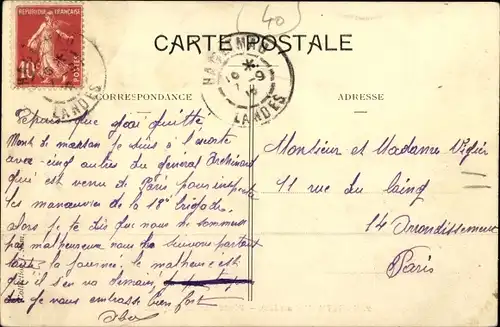 40
CARTE POSTALE
REPUBLIQUE FRANÇAISE
10
POSTES
LANDES
LANDES
CORRESPONDANCE
ADRESSE
Depuis que j'ai quitté
Mont de marsan je suis à l'escorte
avec cinq autres du general Archinard
qui est venu de Paris pour inspecter
les manœuvres de la 18e brigade.
Alors je te dis que nous ne sommes
pas malheureux nous le suivons partout
toute la journée. le malheur c'est
qu'il s'en va demain,
je nous embrasse bien fort
Monsieur et Madame Vigier
11 rue du Cinq
14 Arrondissement
Paris